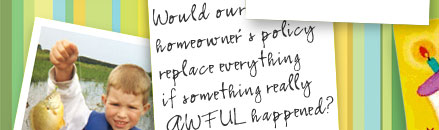 Would our
homeowner's policy
replace everything
if something really
AWFUL happened?